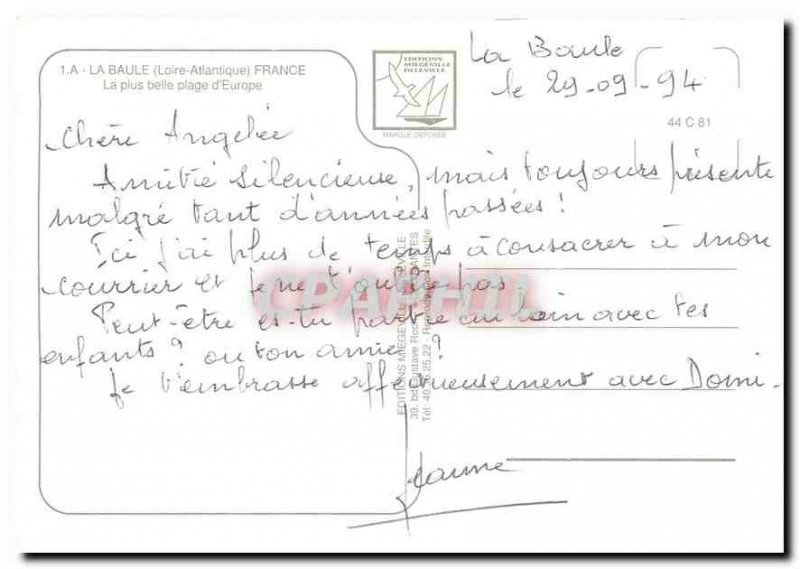 1.A - LA BAULE (Loire-Atlantique) FRANCE
La plus belle plage d'Europe
EDITIONS
MIEGEVILLE
BELLEVILLE
MARQUE DEPOSEE
La Baule
le 29-09-94
44 C 81
Chère Angelie
Amitié silencieuse, mais toujours présente
malgré tant d'années passées !
Ici j'ai plus de temps à consacrer à mon
courrier et je ne t'oublie pas
Peut-être es-tu partie au loin avec tes
enfants ? ou ton amie ?
Je t'embrasse affectueusement avec Domi.
CPAPHIL
EDITIONS MIEGEVILLE
39, bd Gustave
Tél: 40.25.22 - Interdite